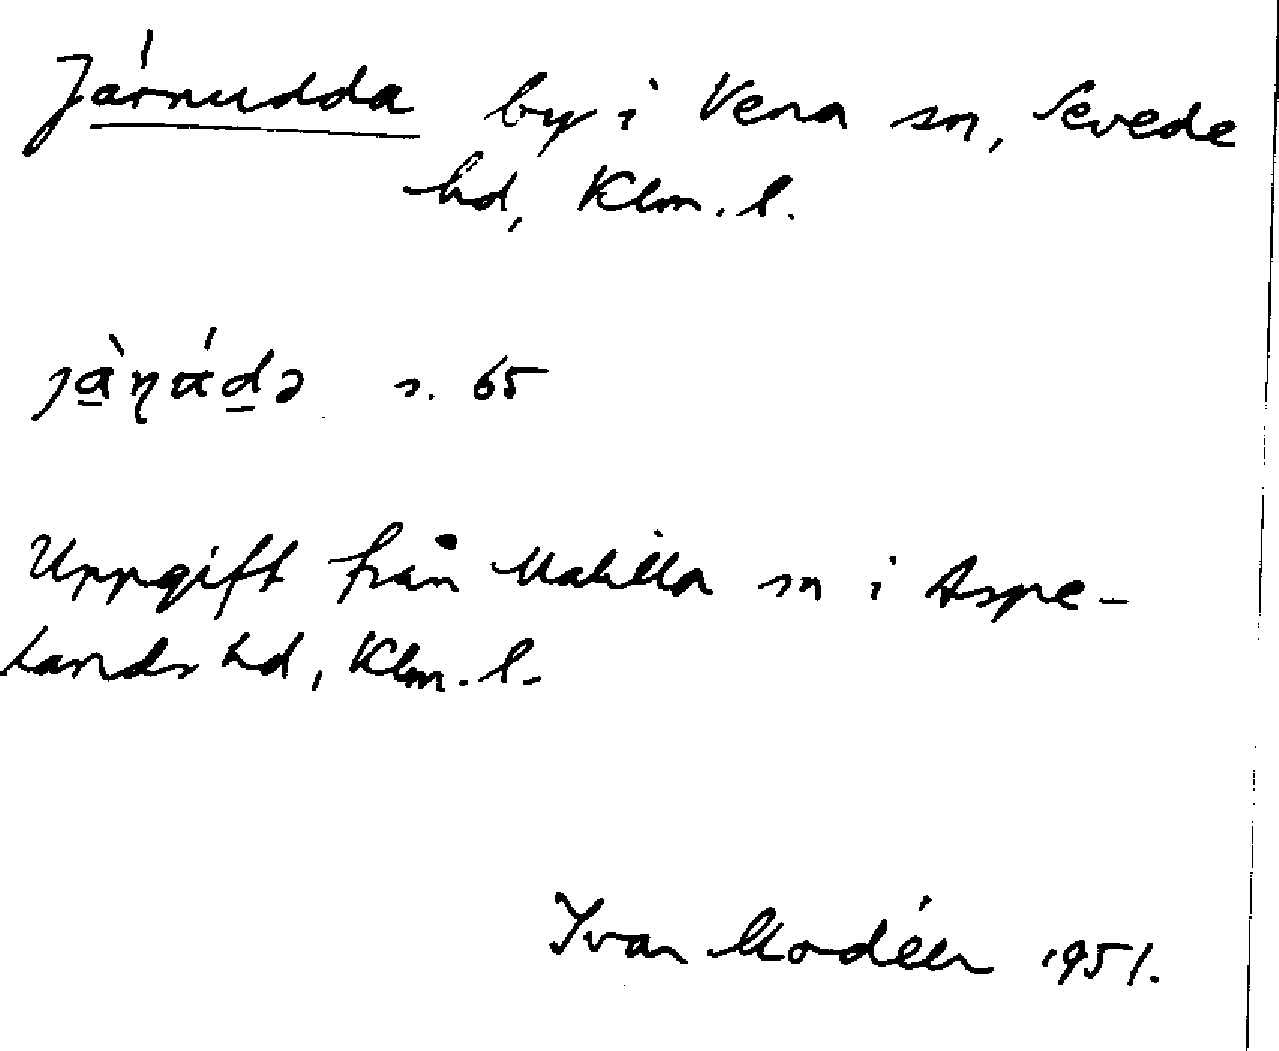 Järnudda by i Vena sn, Sevede
hd, Klm. l.
s. 65
Uppgift från Målilla sn i Aspe-
lands hd, Klm. l.
Ivar Modéer 1951.